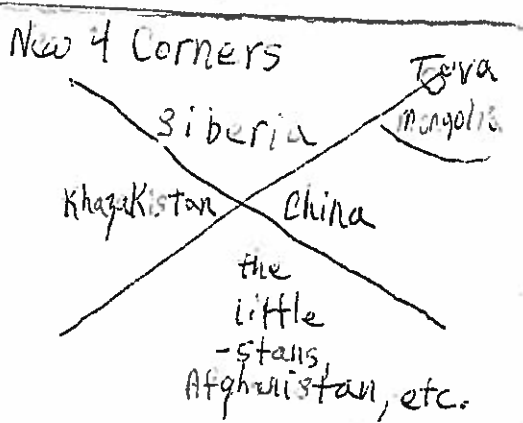 New 4 Corners
Tyva
Siberia
Mongolia
Khazakistan
China
the
little
-stans,
Afghanistan, etc.